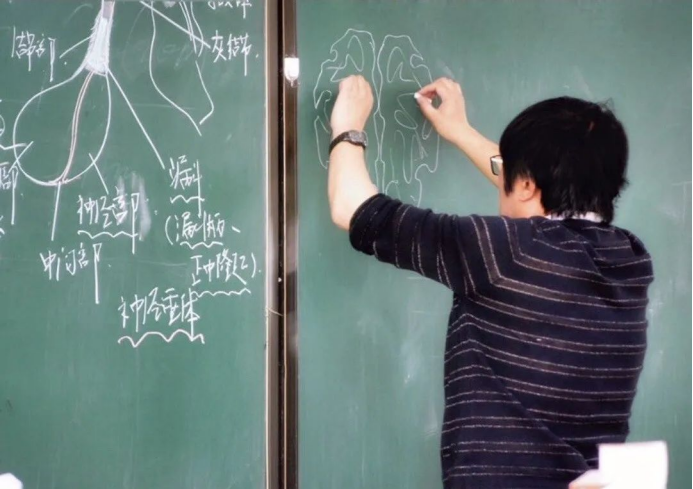 灰结节
漏斗
神经部
(漏斗柄、
中间部
正中隆起)
神经垂体